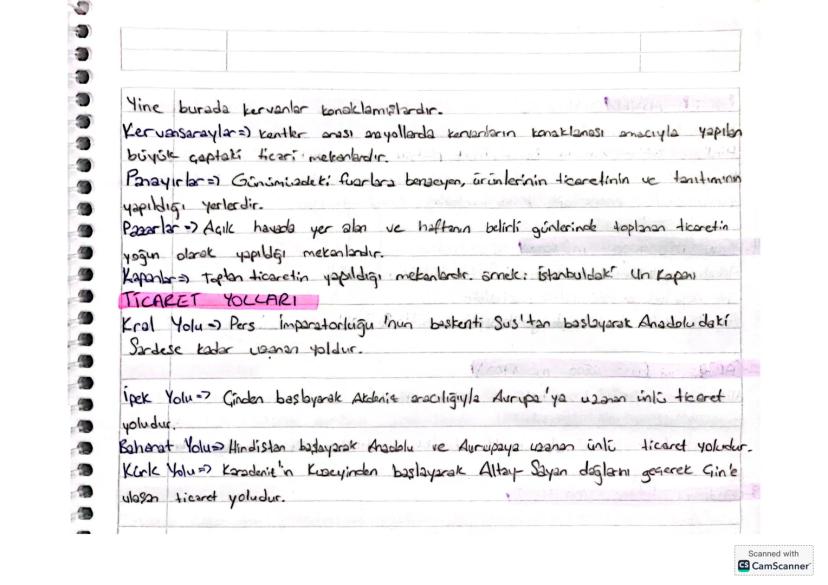 Yine burada kervanlar konaklamışlardır.
Kervansaraylar=> kentler arası anayollarda kervanların konaklaması amacıyla yapılan
büyük çaptaki ticari mekanlardır.
Panayırlar=> Günümüzdeki fuarlara benzeyen, ürünlerinin ticaretinin ve tanıtımının
yapıldığı yerlerdir.
Pazarlar=> Açık havada yer alan ve haftanın belirli günlerinde toplanan ticaretin
yoğun olarak yapıldığı mekanlardır.
Kapanlar=> Toptan ticaretin yapıldığı mekanlardır. örnek: İstanbuldaki Un Kapanı
TİCARET YOLLARI
Kral Yolu=> Pers İmparatorluğu'nun başkenti Sus'tan başlayarak Anadoludaki
Sardese kadar uzanan yoldur.
İpek Yolu=> Çinden başlayarak Akdeniz aracılığıyla Avrupa'ya uzanan ünlü ticaret
yoludur.
Baharat Yolu=> Hindistan başlayarak Anadolu ve Avrupaya uzanan ünlü ticaret yoludur.
Kürk Yolu=> Karadeniz'in Kuzeyinden başlayarak Altay-Sayan dağlarını geçerek Çin'e
ulaşan ticaret yoludur.
Scanned with
CS CamScanner